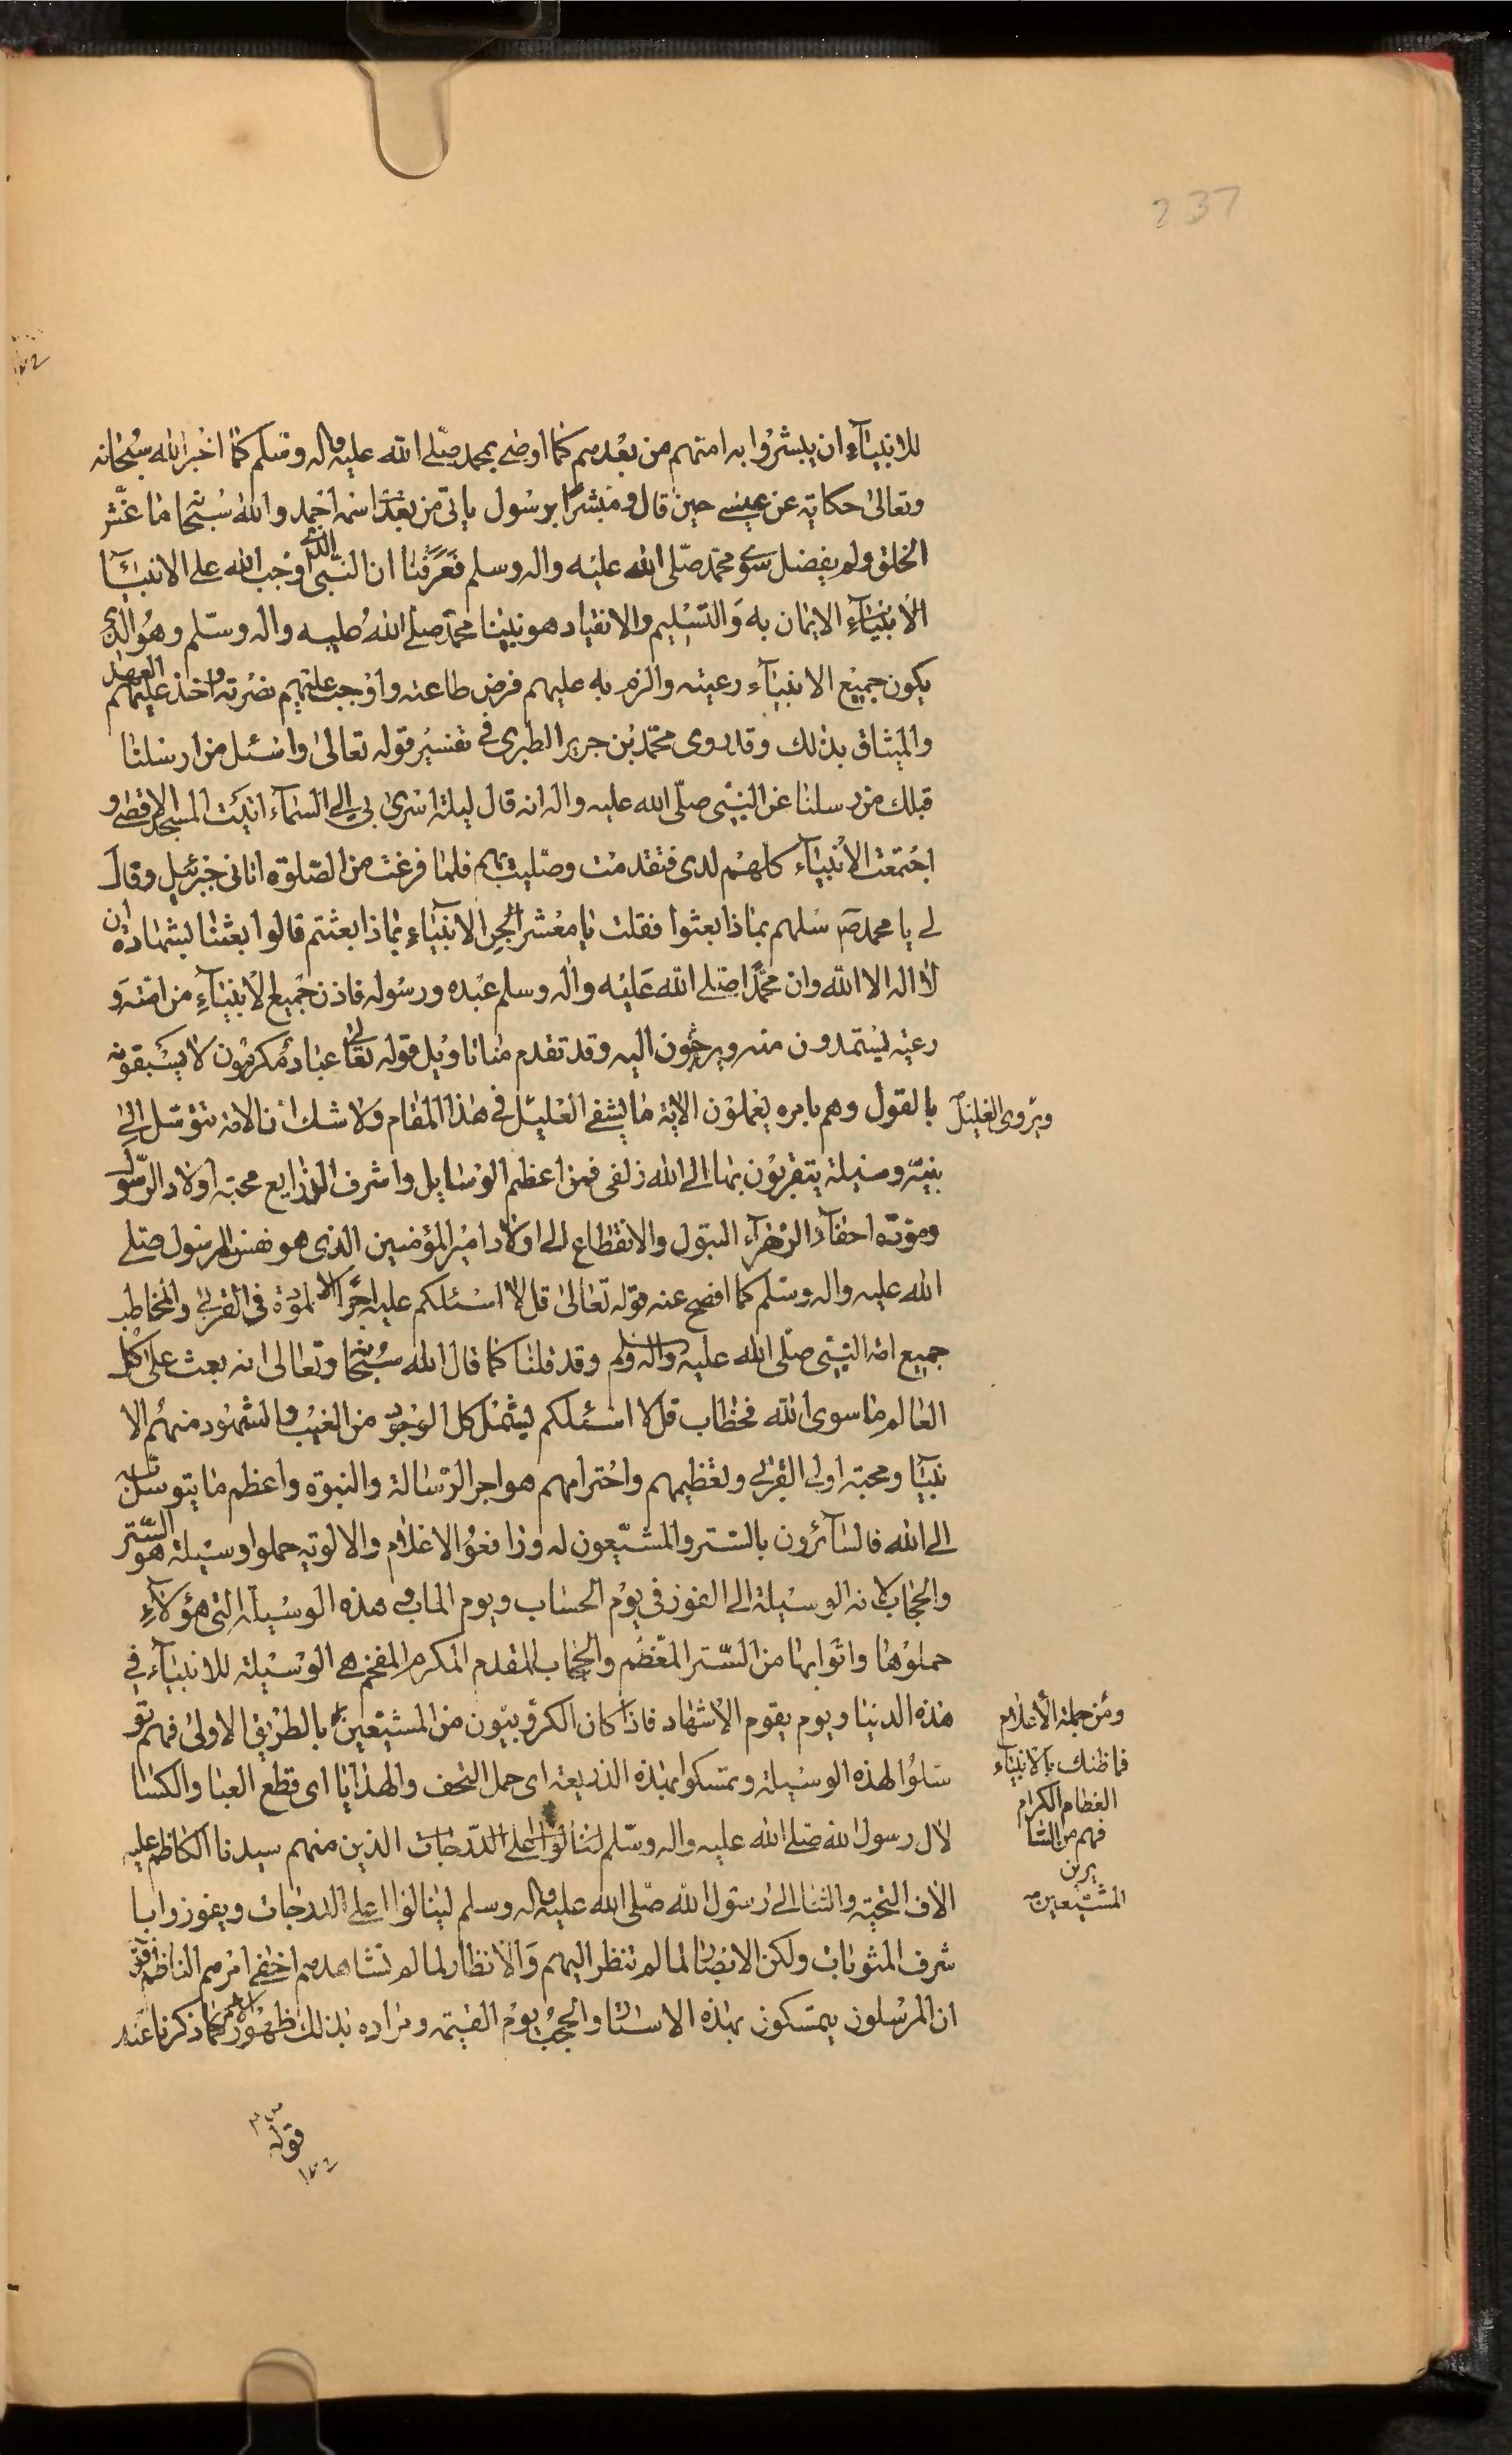 237
للانبیآءِ ان یبشرُوا به امتهم من بعْدهم کما اوصٰی بمحمد صلّی الله علیه واله وسلم کمٰا اخْبر الله سُبْحانه
وتعالیٰ حکایته عن عیسی حین قال ومُبشرًا برسُول یاتی من بعْدی اسمه احْمد والله سُبْحٰا مٰا
الخلق ولم یفضل سوی محمّد صلّی الله علیْه واله وسلم فعَرَفْنٰا ان النّبی الذی اوْجب الله علی الانبیٰآ
الاَنبیٰآءِ الایمٰان به وَالتسْلیم والانقیاد هو نبیّنا محمّد صلّی اللهُ علیه واله وسلّم وهُو الذی
یکون جمیْع الانبیٰآء رعیته والزم به علیهم فرض طاعته واوْجب علیْهم نصْرته واخذ علیْهم العهْد
والمیثاق بذٰلك وقد روی محمّد بْن جریر الطبری فی تفسیْر قوله تعالیٰ واسْئل من ارسلنٰا
قبلك من رسلنا عن النبّی صلّی الله علیه واله انه قال لیلة اسْریٰ بی الی السّمآء اتیْت المسجد الاقصیٰ و
اجْتمعت الانْبیٰآء کلهُم لدی فتقدمْت وصلّیت بهم فلمٰا فرغت من الصّلوٰة اتانی جبْرئیل وقال
لی یا محمد صٓ سْلهم بمٰا ذا بعثوا فقلت یٰا معْشر الانبیٰآءِ بمٰا ذا بعثتم قالوا بعثنٰا لشهٰادة ان
لٰا اله الا الله وان محمّدًا صلی الله عَلیْه واٰله وسلم عبْده ورسُوله فاذن جمیْع الانبیٰآءِ من امّته وَ
رعیته یسْتمدون منه ویرجعون الیه وقد تقدم منا تاویْل قوله تعٰالی عبٰاد مُکرمُون لا یسْبقونه
بالقول وهم بامره یعْملوْن الایة مٰا یشفی العلیْل فی هٰذا المقام ولا شك انّ الامة تتوسّل الی
ویَرْوی الغلیْل
نبیّه وسیلة یتقربُون بهٰا الی الله زلفی فمن اعظم الوسٰایل واشرف الذرایع محبّة اولاد الرّسول
ومودّة احفاد الزهرآء البتول والانقطاع الی اولاد امیْر المؤمنین الذی هو نفس الرسُول صلی
الله علیه واله وسلم کما افصح عنه قوله تعٰالیٰ قل لا اسْئلکم علیه اجْرًا الا المودّة فی القربیٰ والمخاطب
جمیع امة النّبی صلّی الله علیه واله وسلم وقد قلنا کمٰا قال الله سُبْحٰا وتعالی انه بعث علی کل
العٰالم مٰا سوی الله فخطاب قل لا اسْئلکم یشْمل کل الوجود من الغیب والشهُود منهُم الا
نبیٰآ ومحبّة اولی القربیٰ وتعْظیمهم واحْترامهم هو اجر الرّسٰالة والنبوة واعظم مٰا یتوسّل به
الی الله فالسّآئرون بالسّتر والمشیّعون له ورٰافعوُا الاعْلام والالویة حملوا وسیْلة هو السّتر
والحجٰاب لانه الوسیْلة الی الفوز فی یوْم الحسٰاب ویوم الماب وهذه الوسیْلة التی هؤلآءِ
حملوْهٰا واتوا بهٰا من السّتر المعْظم والحجٰاب المقدم المکرم المفخم هی الوسْیلة للانبیٰآء فی
هٰذه الدنیٰا ویوم یقوم الاشهٰاد فاذا کان الکرّوبیّون من المشیّعین بالطّریْق الاولیٰ فهم تو
ومن جملة الأعْلام
فمٰا ظنك بالانبیٰآء
العظام الکرام
فهم من السّا
یرین
المشیّعین
سّلوُا لهذه الوسیْلة وتمسّکوا بهٰذه الذریعة ای حمل التحف والهذایٰا ای قطع العبٰا والکسٰا
لال رسول الله صلی الله علیه واله وسلّم لینالوُا اعلی الدّرجٰات الذین منهم سیدنا الکاظم علیه
الاف التحیّة والثنٰا الی رسوْل الله صلّی الله علیه واله وسلم لینٰالوُا اعلی الدرجٰات ویفوزوا با
شرف المثوبٰات ولکن الابْصٰار لما لم تنظر الیهم وَالانظار لما لم تشاهدهم اخْفی امْرهم الناظم
ان المرْسلون یتمسّکون بهٰذه الاسْتار والحجْب یوْم القیٰمة ومرٰاده بذلك ظهُور الامر کمٰا ذکرنا عَنه
قوله